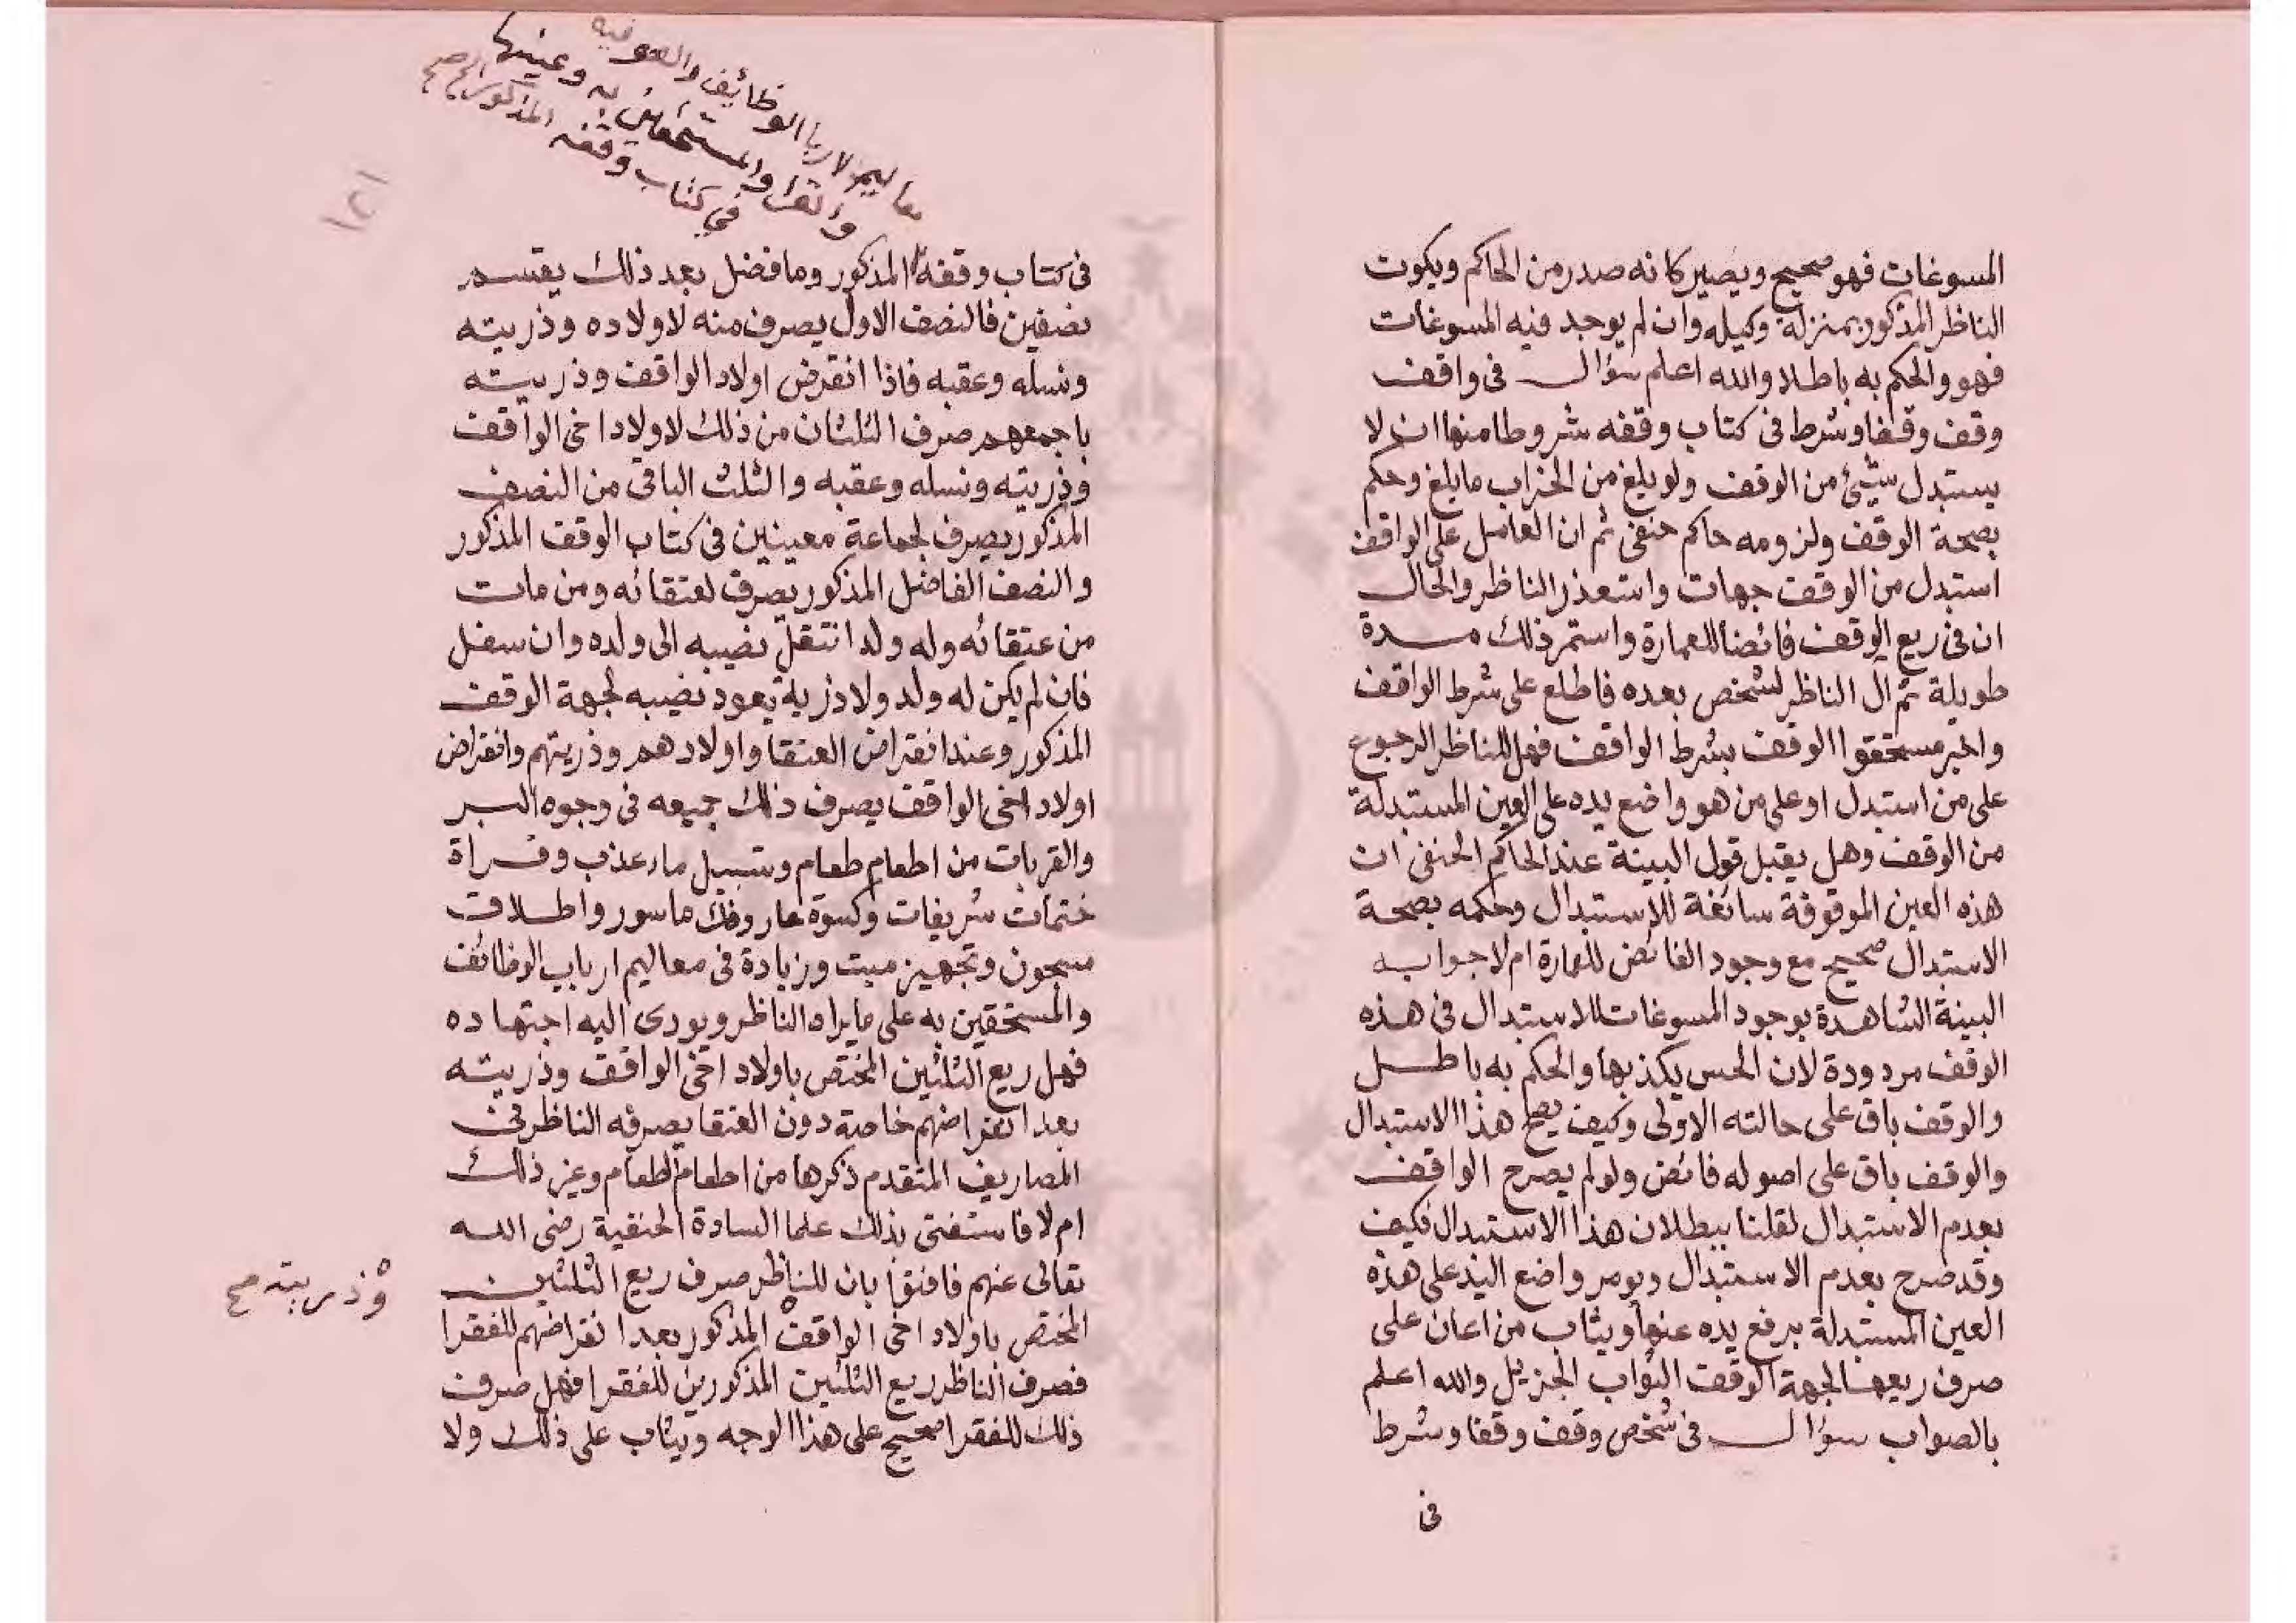 المسوغات فهو صحيح ويصير كانه صدر من الحاكم ويكون
الناظر المذكور بمنزلة وكيله وان لم يوجد فيه المسوغات
فهو والحكم به باطلا والله اعلم سؤال في واقف
وقف وقفا وشرط في كتاب وقفه شروطا منها ان لا
يستبدل شيئ من الوقف ولو بلغ من الخراب ما بلغ وحكم
بصحة الوقف ولزومه حاكم حنفي ثم ان العامل على الواقف
استبدل من الوقف جهات واستعذر الناظر والحال
ان في ريع الوقف فائضا للعمارة واستمر ذلك مدة
طويلة ثم ال الناظر لشخص بعده فاطلع على شرط الواقف
واخبر مستحقوا الوقف بشرط الواقف فهل للناظر الرجوع
على من استبدل او على من هو واضع يده على العين المستبدلة
من الوقف وهل يقبل قول البينة عند الحاكم الحنفي ان
هذه العين الموقوفة سائغة للاستبدال وحكمه بصحة
الاستبدال صحيح مع وجود الفائض للعمارة ام لا جوابه
البينة الشاهدة بوجود المسوغات للاستبدال في هذه
الوقف مردودة لان الحس يكذبها والحكم به باطل
والوقف باق على حالته الاولى وكيف يصح هذا الاستبدال
والوقف باق على اصوله فائض ولو لم يصرح الواقف
بعدم الاستبدال لقلنا ببطلان هذا الاستبدال فكيف
وقد صرح بعدم الاستبدال ويومر واضع اليد على هذه
العين المستبدلة برفع يده عنها ويثاب من اعان على
صرف ريعها لجهة الوقف الثواب الجزيل والله اعلم
بالصواب سؤال في شخص وقف وقفا وشرط
في
معاليم لارباب الوظائف والصوفيه
والقراء والمستحقين به وعينها
في كتاب وقفه المذكور الخ صح
١٢١
في كتاب وقفه المذكور وما فضل بعد ذلك يقسم
نصفين فالنصف الاول يصرف منه لاولاده وذريته
ونسله وعقبه فاذا انقرض اولاد الواقف وذريته
باجمعهم صرف الثلثان من ذلك لاولاد اخي الواقف
وذريته ونسله وعقبه والثلث الباقي من النصف
المذكور يصرف لجماعة معينين في كتاب الوقف المذكور
والنصف الفاضل المذكور يصرف لعتقائه ومن مات
من عتقائه وله ولد انتقل نصيبه الى ولده وان سفل
فان لم يكن له ولد ولا ذرية يعود نصيبه لجهة الوقف
المذكور وعند انقراض العتقا واولادهم وذريتهم وانقراض
اولاد اخي الواقف يصرف ذلك جميعه في وجوه البر
والقربات من اطعام طعام وتسبيل ماء عذب وقراة
ختمات شريفات وكسوة عار وفك ماسور واطلاق
مسجون وتجهيز ميت وزيادة في معاليم ارباب الوظائف
والمستحقين به على ما يراه الناظر ويودي اليه اجتهاده
فهل ريع الثلثين المختص باولاد اخي الواقف وذريته
بعد انقراضهم خاصة دون العتقا يصرفه الناظر في
المصاريف المتقدم ذكرها من اطعام الطعام وغير ذلك
ام لا فاستفتى بذلك علما السادة الحنفية رضي الله
تعالى عنهم فافتوا بان للناظر صرف ريع الثلثين
المختص باولاد اخي الواقف المذكور بعد انقراضهم للفقرا
وذريته صح
فصرف الناظر ريع الثلثين المذكورين للفقرا فهل صرف
ذلك للفقرا صحيح على هذا الوجه ويثاب على ذلك ولا